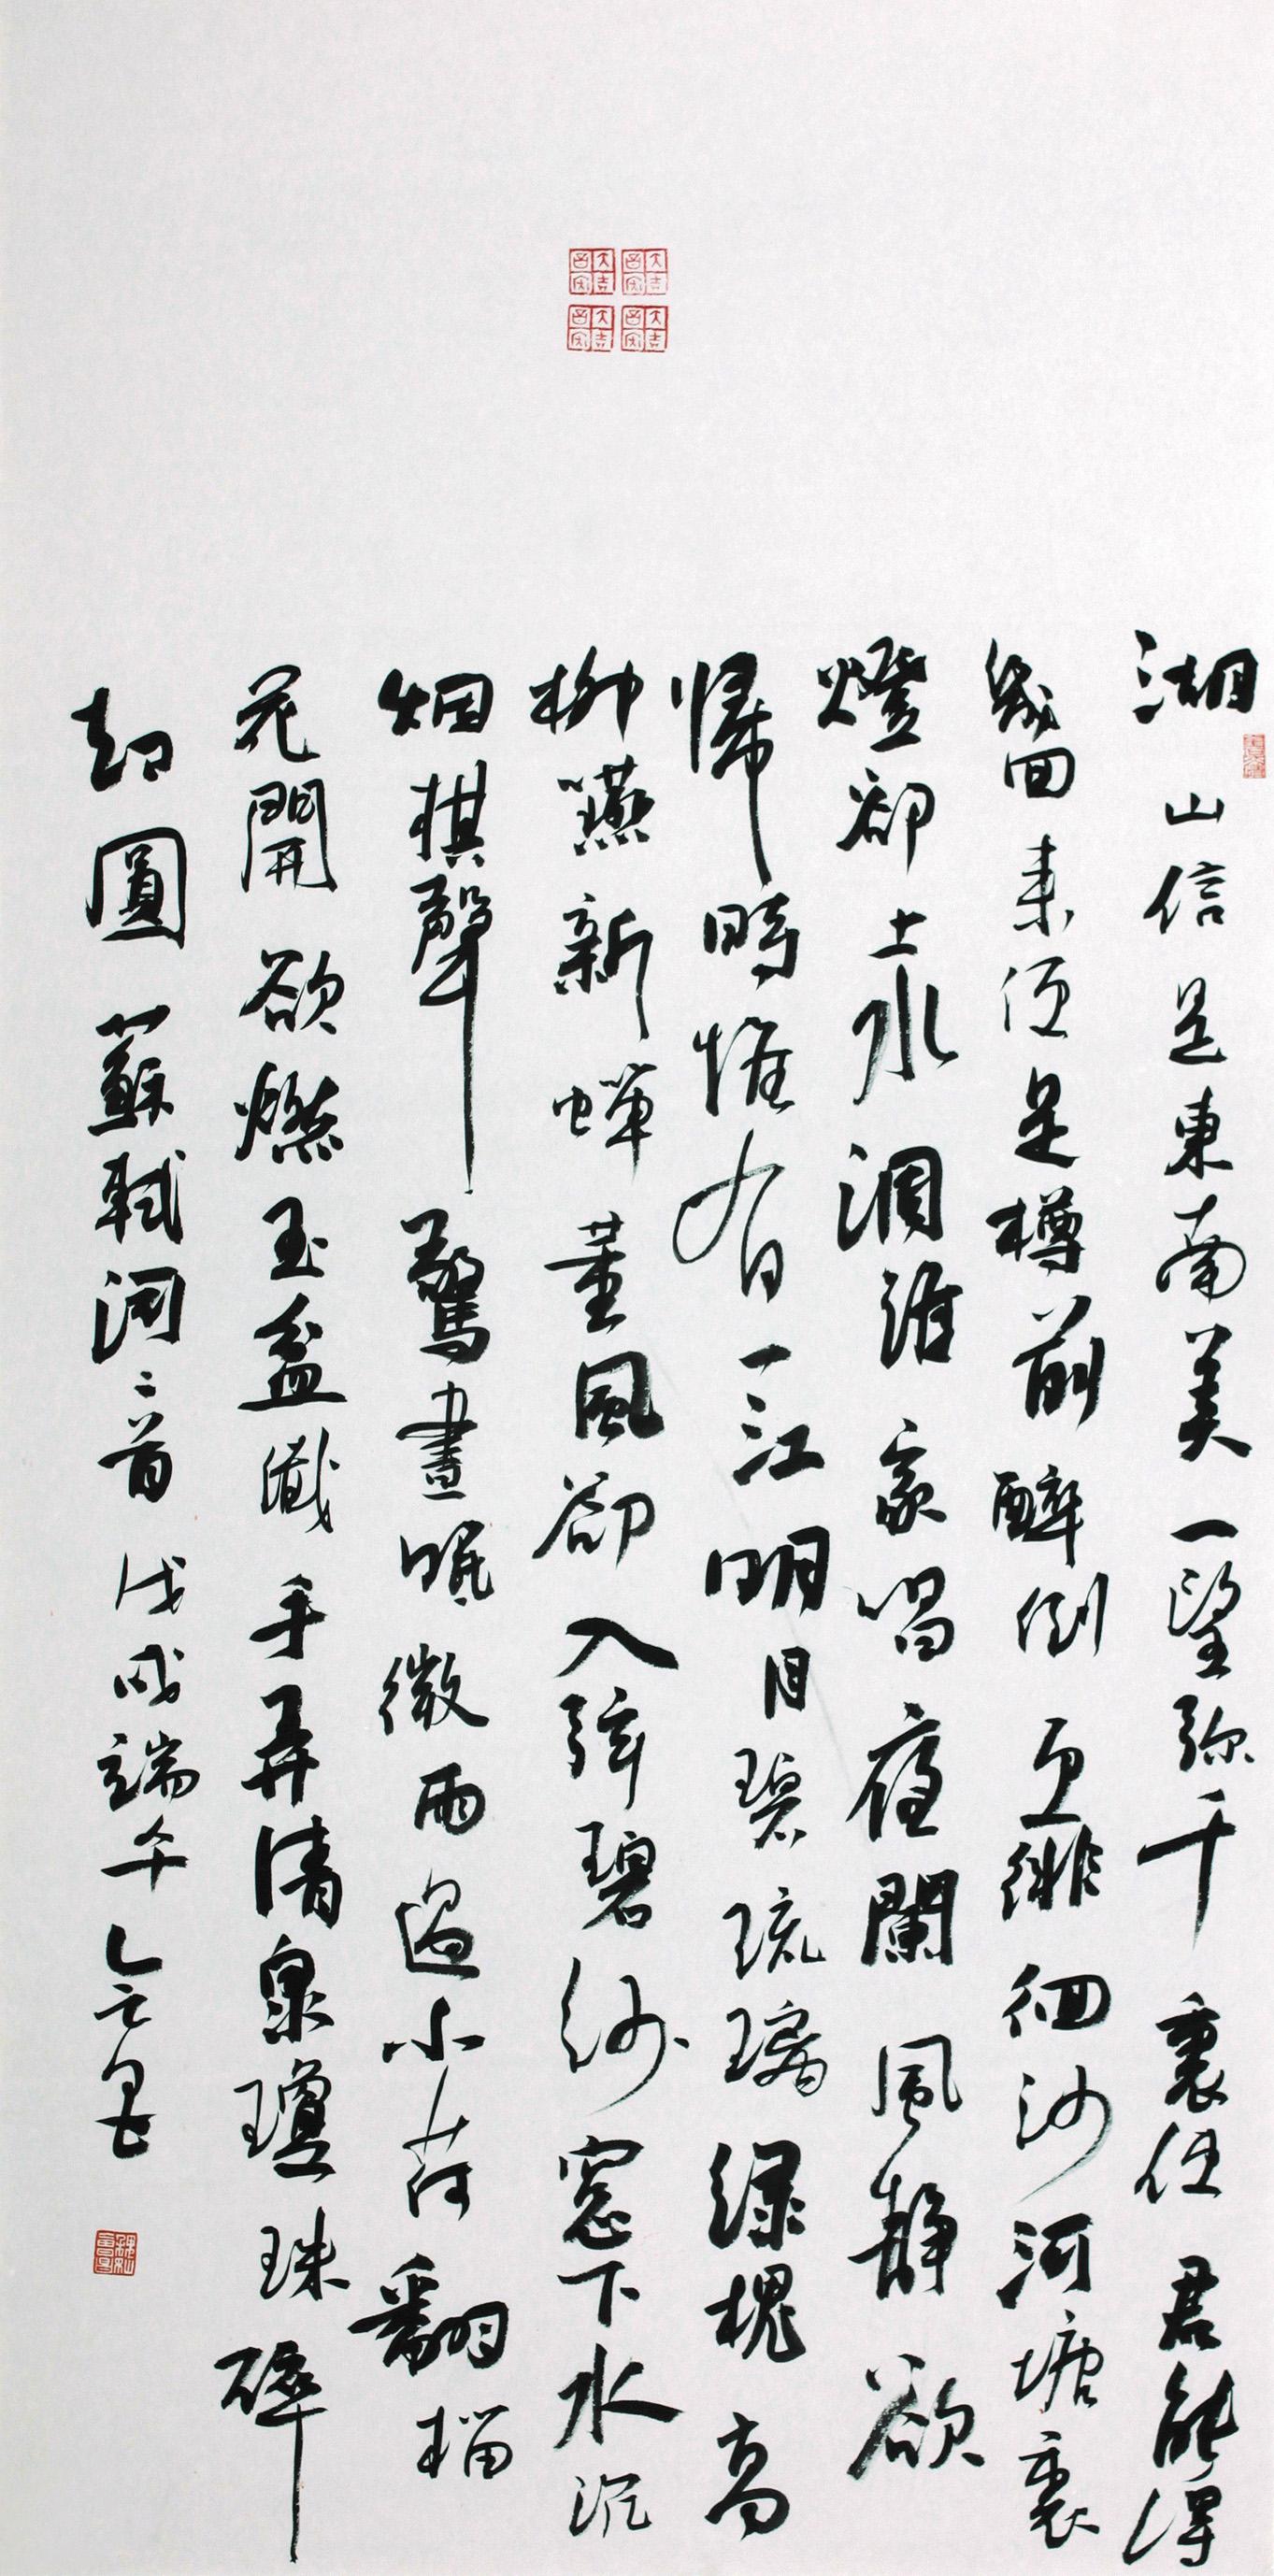 湖山信是東南美一望弥千裏使君能得
幾回来便是樽前醉倒更徘徊沙河塘裏
燈卻上水調誰家唱夜闌風静欲
歸時惟有一江明月碧琉璃緑槐高
柳嚥新蟬薰風卻入弦碧紗窓下水沉
烟棋聲驚晝眠微雨過小荷翻榴
花開欲燃玉盆纖手弄清泉瓊珠碎
却圓 蘇軾詞二首 戊戌端午